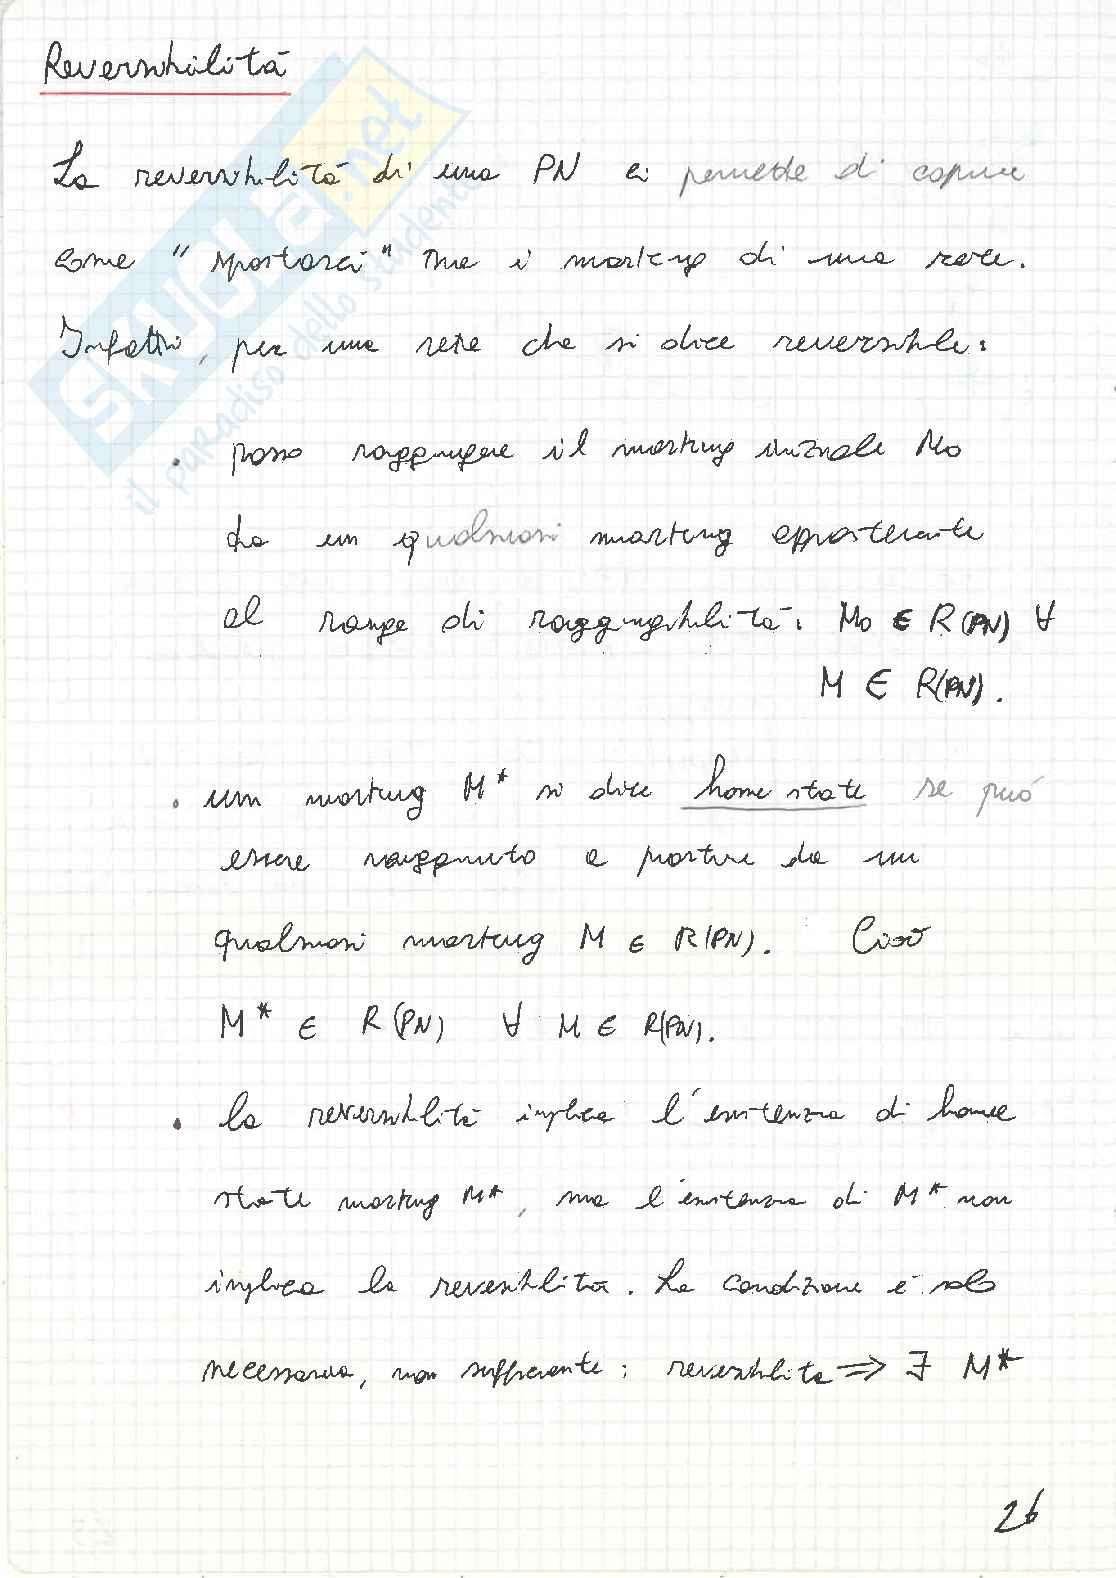 Reversibilità
La reversibilità di una PN ci permette di capire
come "spostarci" tra i marking di una rete.
Infatti, per una rete che si dice reversibile:
• posso raggiungere il marking iniziale M0
da un qualsiasi marking appartenente
al range di raggiungibilità: M0 ∈ R(PN) ∀
M ∈ R(PN).
• un marking M* si dice home state se può
essere raggiunto a partire da un
qualsiasi marking M ∈ R(PN). Cioè
M* ∈ R(PN) ∀ M ∈ R(PN).
• la reversibilità implica l'esistenza di home
state marking M*, ma l'esistenza di M* non
implica la reversibilità. La condizione è solo
necessaria, non sufficiente: reversibilità ⇒ ∃ M*
26
SKUOLA.net
il paradiso dello studente